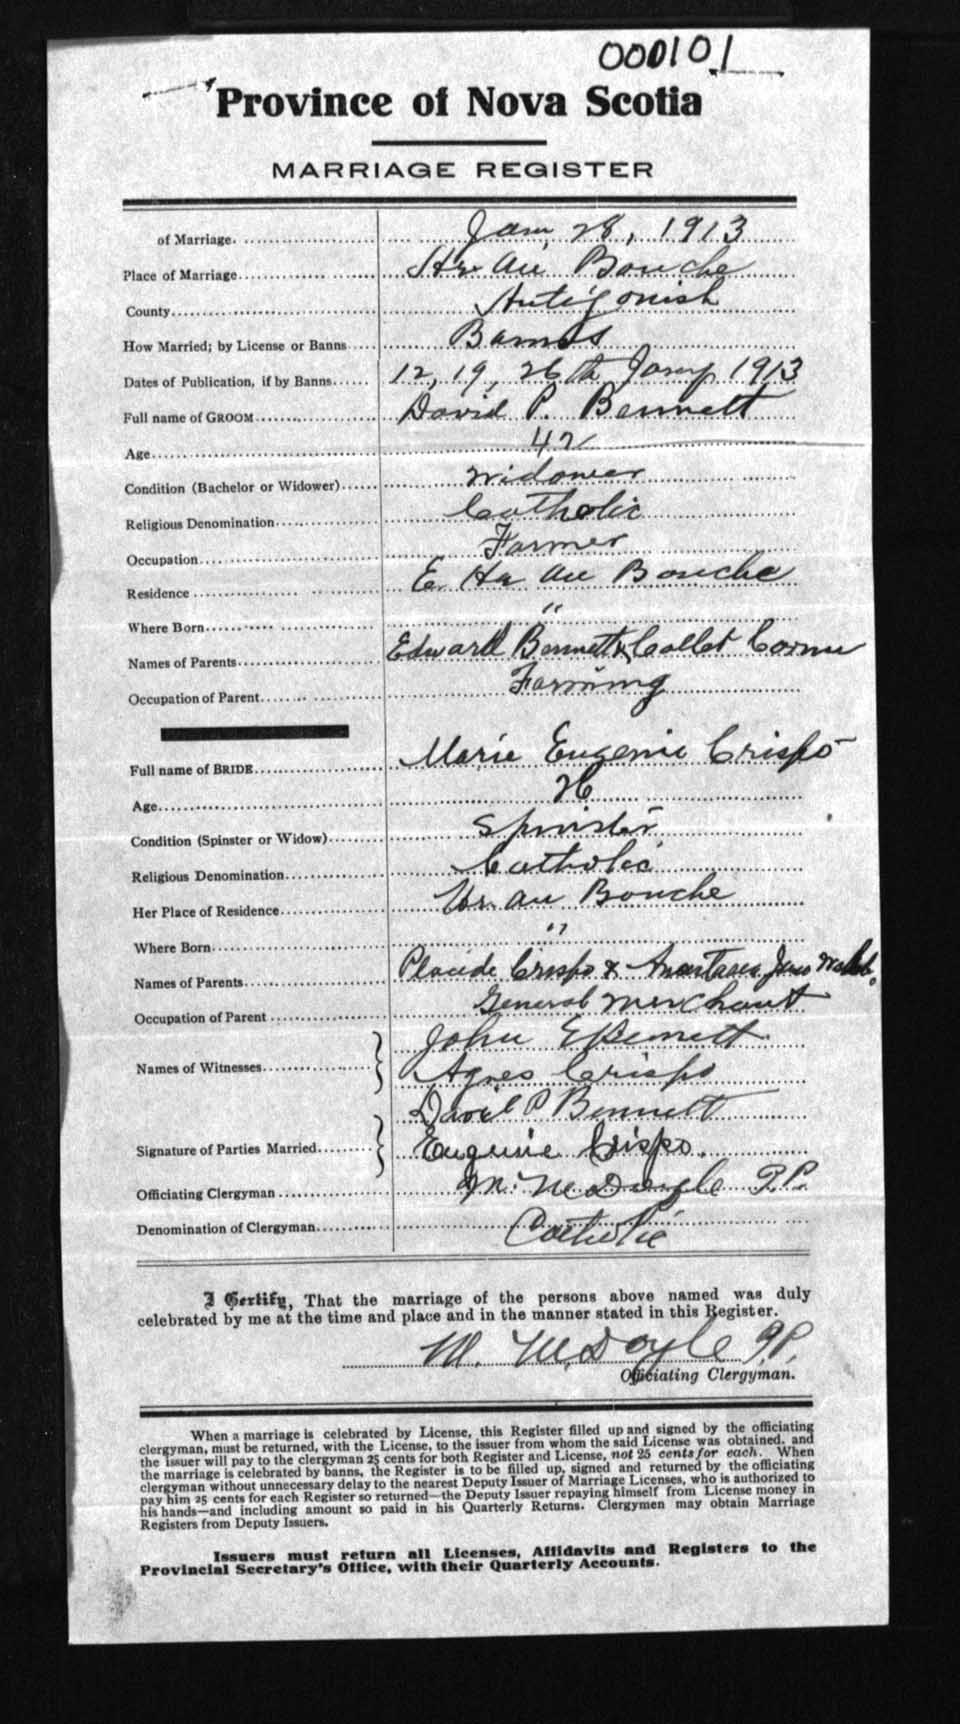 000101
Province of Nova Scotia
MARRIAGE REGISTER
of Marriage. Jan, 28, 1913
Place of Marriage Hr. Au Bouche
County Antigonish
How Married; by License or Banns Banns
Dates of Publication, if by Banns 12, 19, 26th Jany 1913
Full name of GROOM David P. Bennett
Age 42
Condition (Bachelor or Widower) Widower
Religious Denomination Catholic
Occupation Farmer
Residence E. Hr Au Bouche
Where Born "
Names of Parents Edward Bennett & Collet Cornu
Occupation of Parent Farming
Full name of BRIDE Marie Eugenie Crispo
Age 26
Condition (Spinster or Widow) Spinster
Religious Denomination Catholic
Her Place of Residence Hr. Au Bouche
Where Born "
Names of Parents Placide Crispo & Jane
Occupation of Parent General Merchant
Names of Witnesses John E Bennett
Agnes Crispo
David P Bennett
Signature of Parties Married Eugenie Crispo.
Officiating Clergyman M. McDoyle P.P.
Denomination of Clergyman Catholic
I Certify, That the marriage of the persons above named was duly
celebrated by me at the time and place and in the manner stated in this Register.
M. M. Doyle P.P.
Officiating Clergyman.
When a marriage is celebrated by License, this Register filled up and signed by the officiating
clergyman, must be returned, with the License, to the issuer from whom the said License was obtained, and
the issuer will pay to the clergyman 25 cents for both Register and License, not 25 cents for each. When
the marriage is celebrated by banns, the Register is to be filled up, signed and returned by the officiating
clergyman without unnecessary delay to the nearest Deputy Issuer of Marriage Licenses, who is authorized to
pay him 25 cents for each Register so returned—the Deputy Issuer repaying himself from License money in
his hands—and including amount so paid in his Quarterly Returns. Clergymen may obtain Marriage
Registers from Deputy Issuers.
Issuers must return all Licenses, Affidavits and Registers to the
Provincial Secretary's Office, with their Quarterly Accounts.